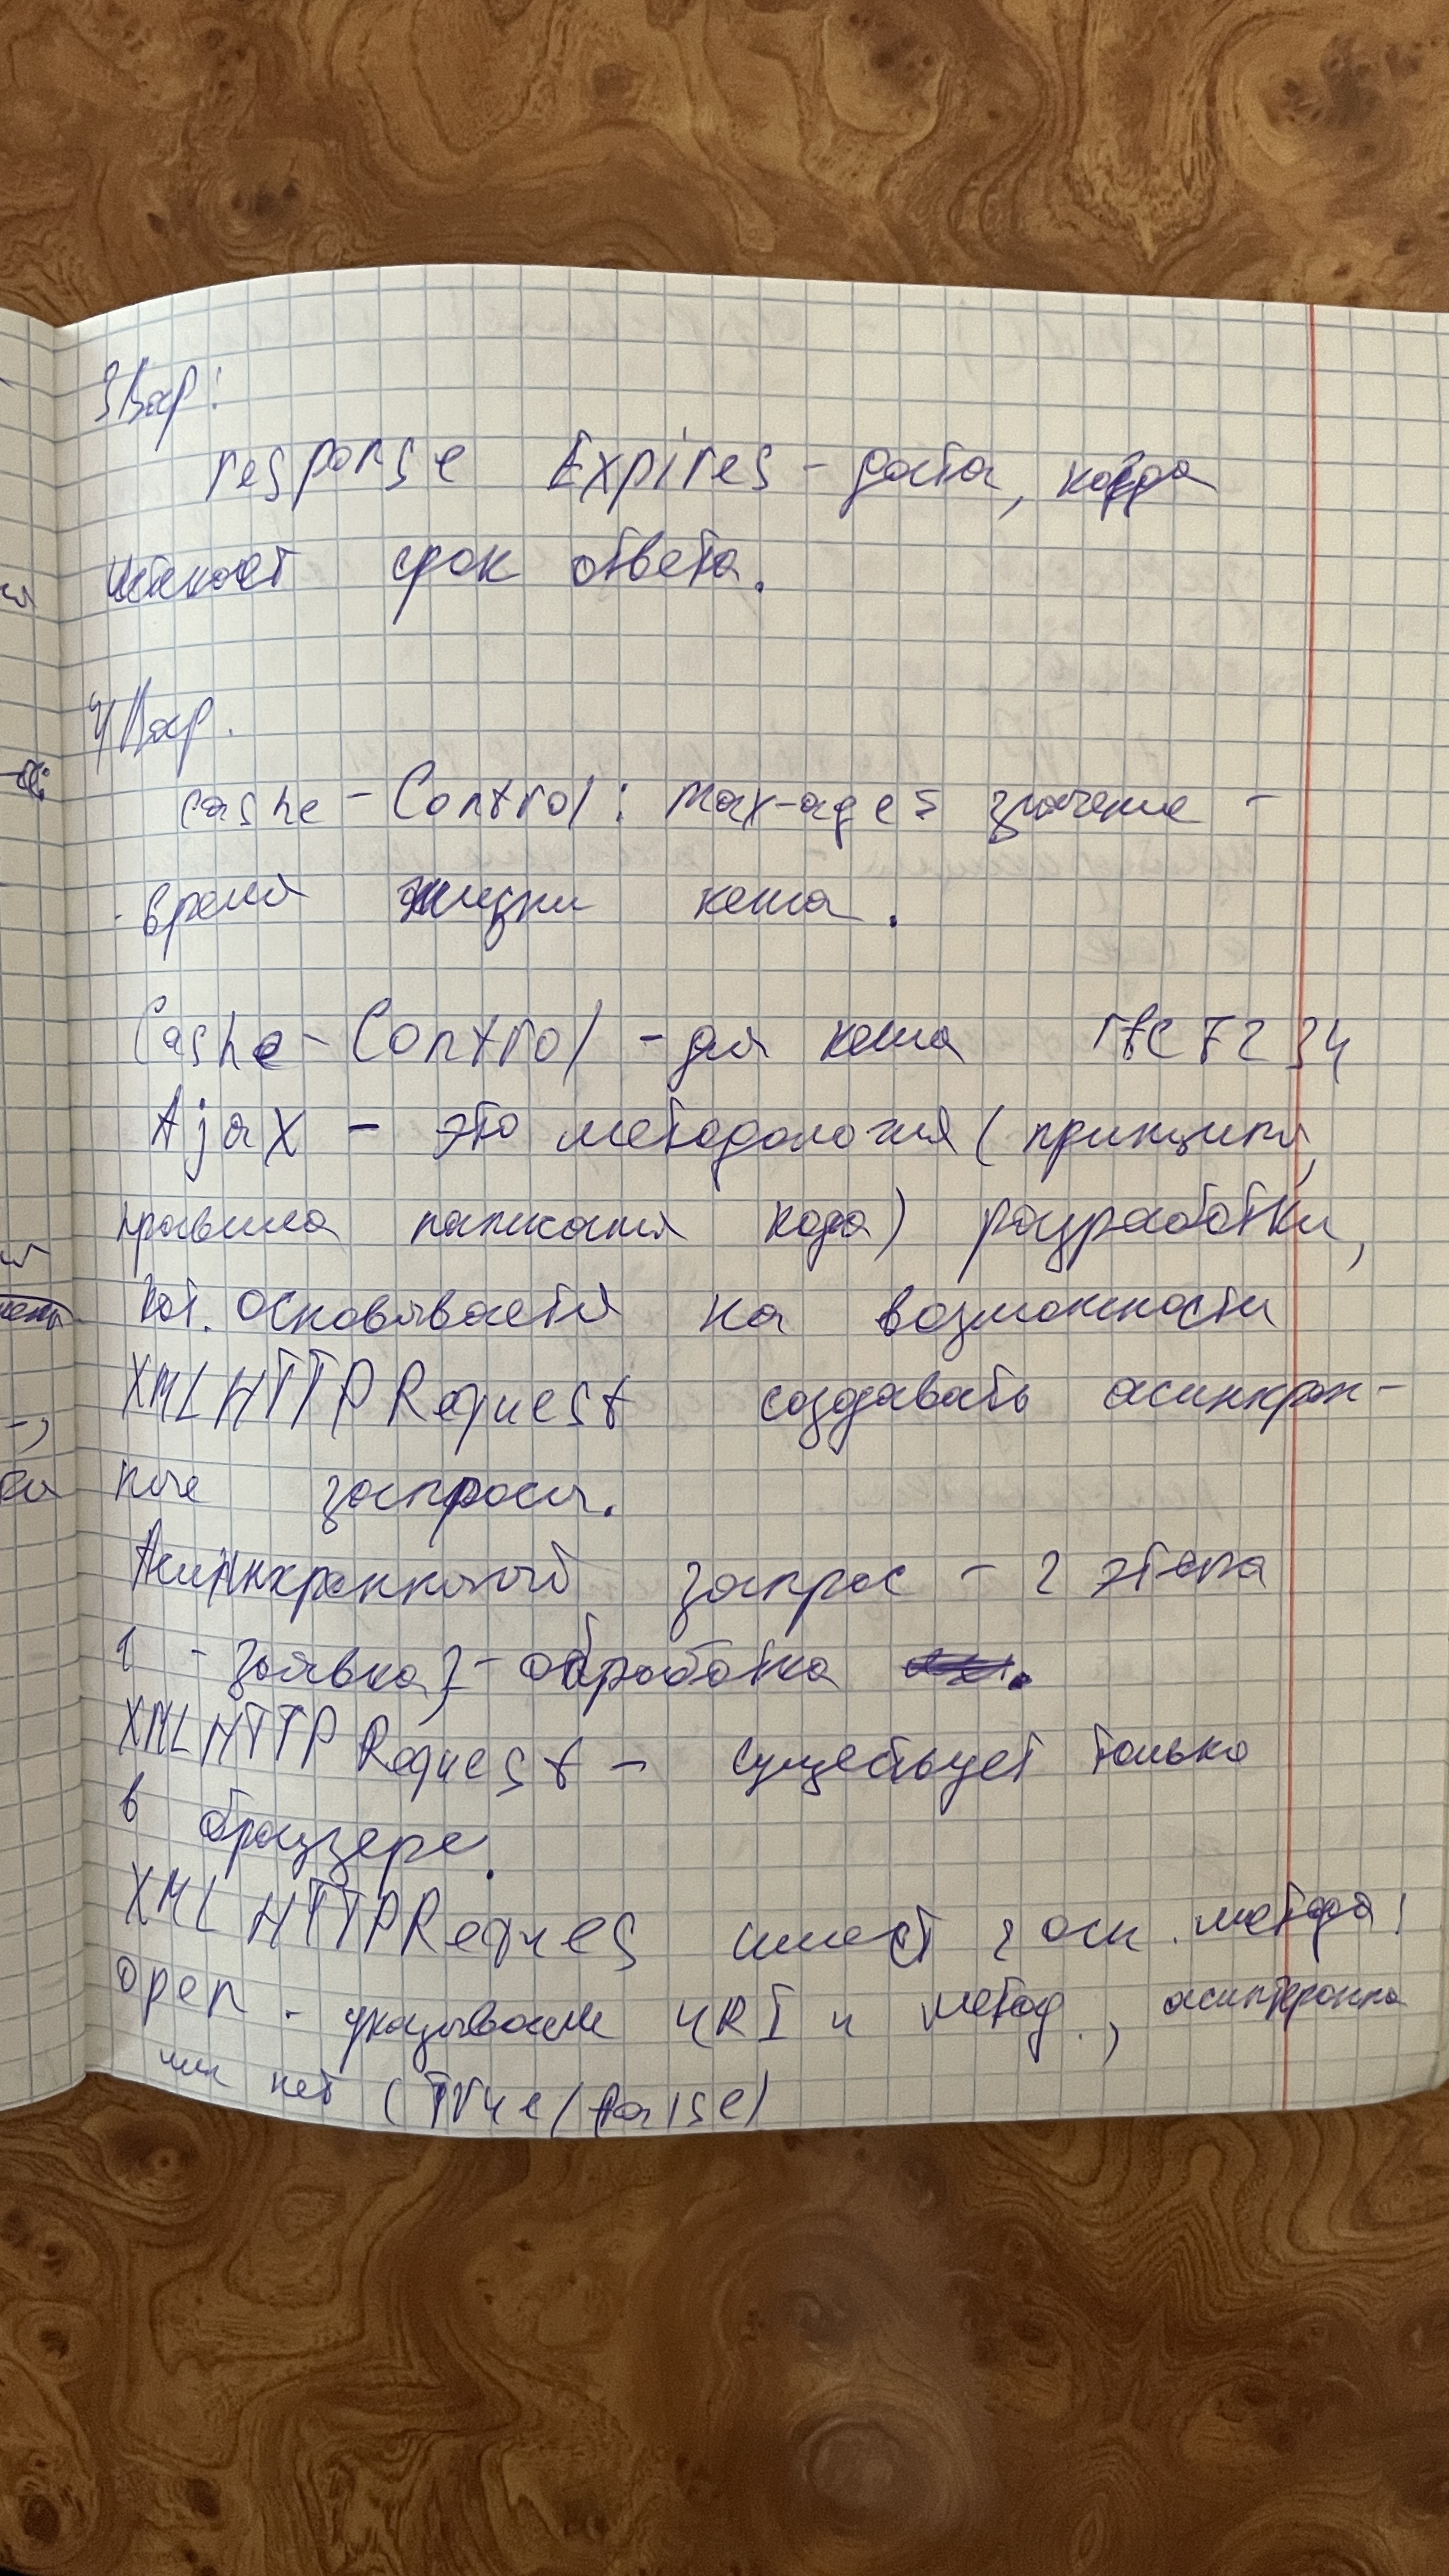 3 Вар:
response Expires - дата, когда
истекает срок ответа.
4 Вар.
cashe - Control: max-age = значение -
- время жизни кеша.
Cashe - Control - для кеша rfc 7234
Ajax - это методология (принципы,
правила написания кода) разработки,
кот. основывается на возможности
XMLHTTPRequest создавать асинхрон-
ные запросы.
Асинхронный запрос - 2 этапа
1 - заявка, 2 - обработка.
XMLHTTPRequest - существует только
в браузере.
XMLHTTPReques имеет 2 осн. метода:
open - указываем URI и метод, асинхронно
или нет (True/false)